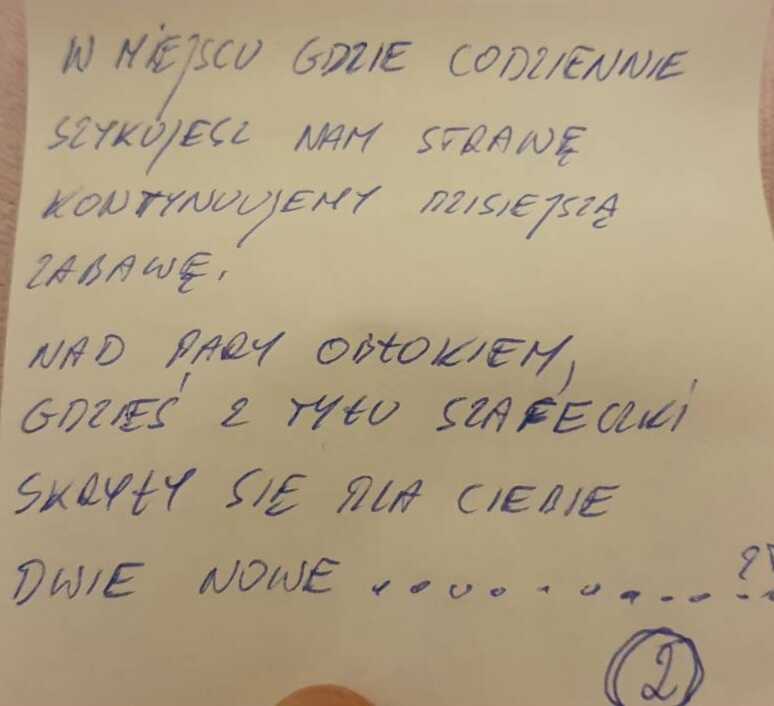 W MIEJSCU GDZIE CODZIENNIE
SZYKUJESZ NAM STRAWĘ
KONTYNUUJEMY DZISIEJSZĄ
ZABAWĘ.
NAD PARY OBŁOKIEM,
GDZIEŚ Z TYŁU SZAFECZKI
SKRYŁY SIĘ DLA CIEBIE
DWIE NOWE ............?
2